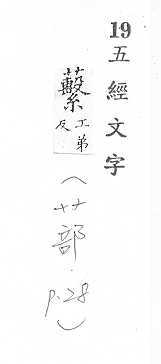 19 五經文字
蘻 工弟反
(艹部 p.28)